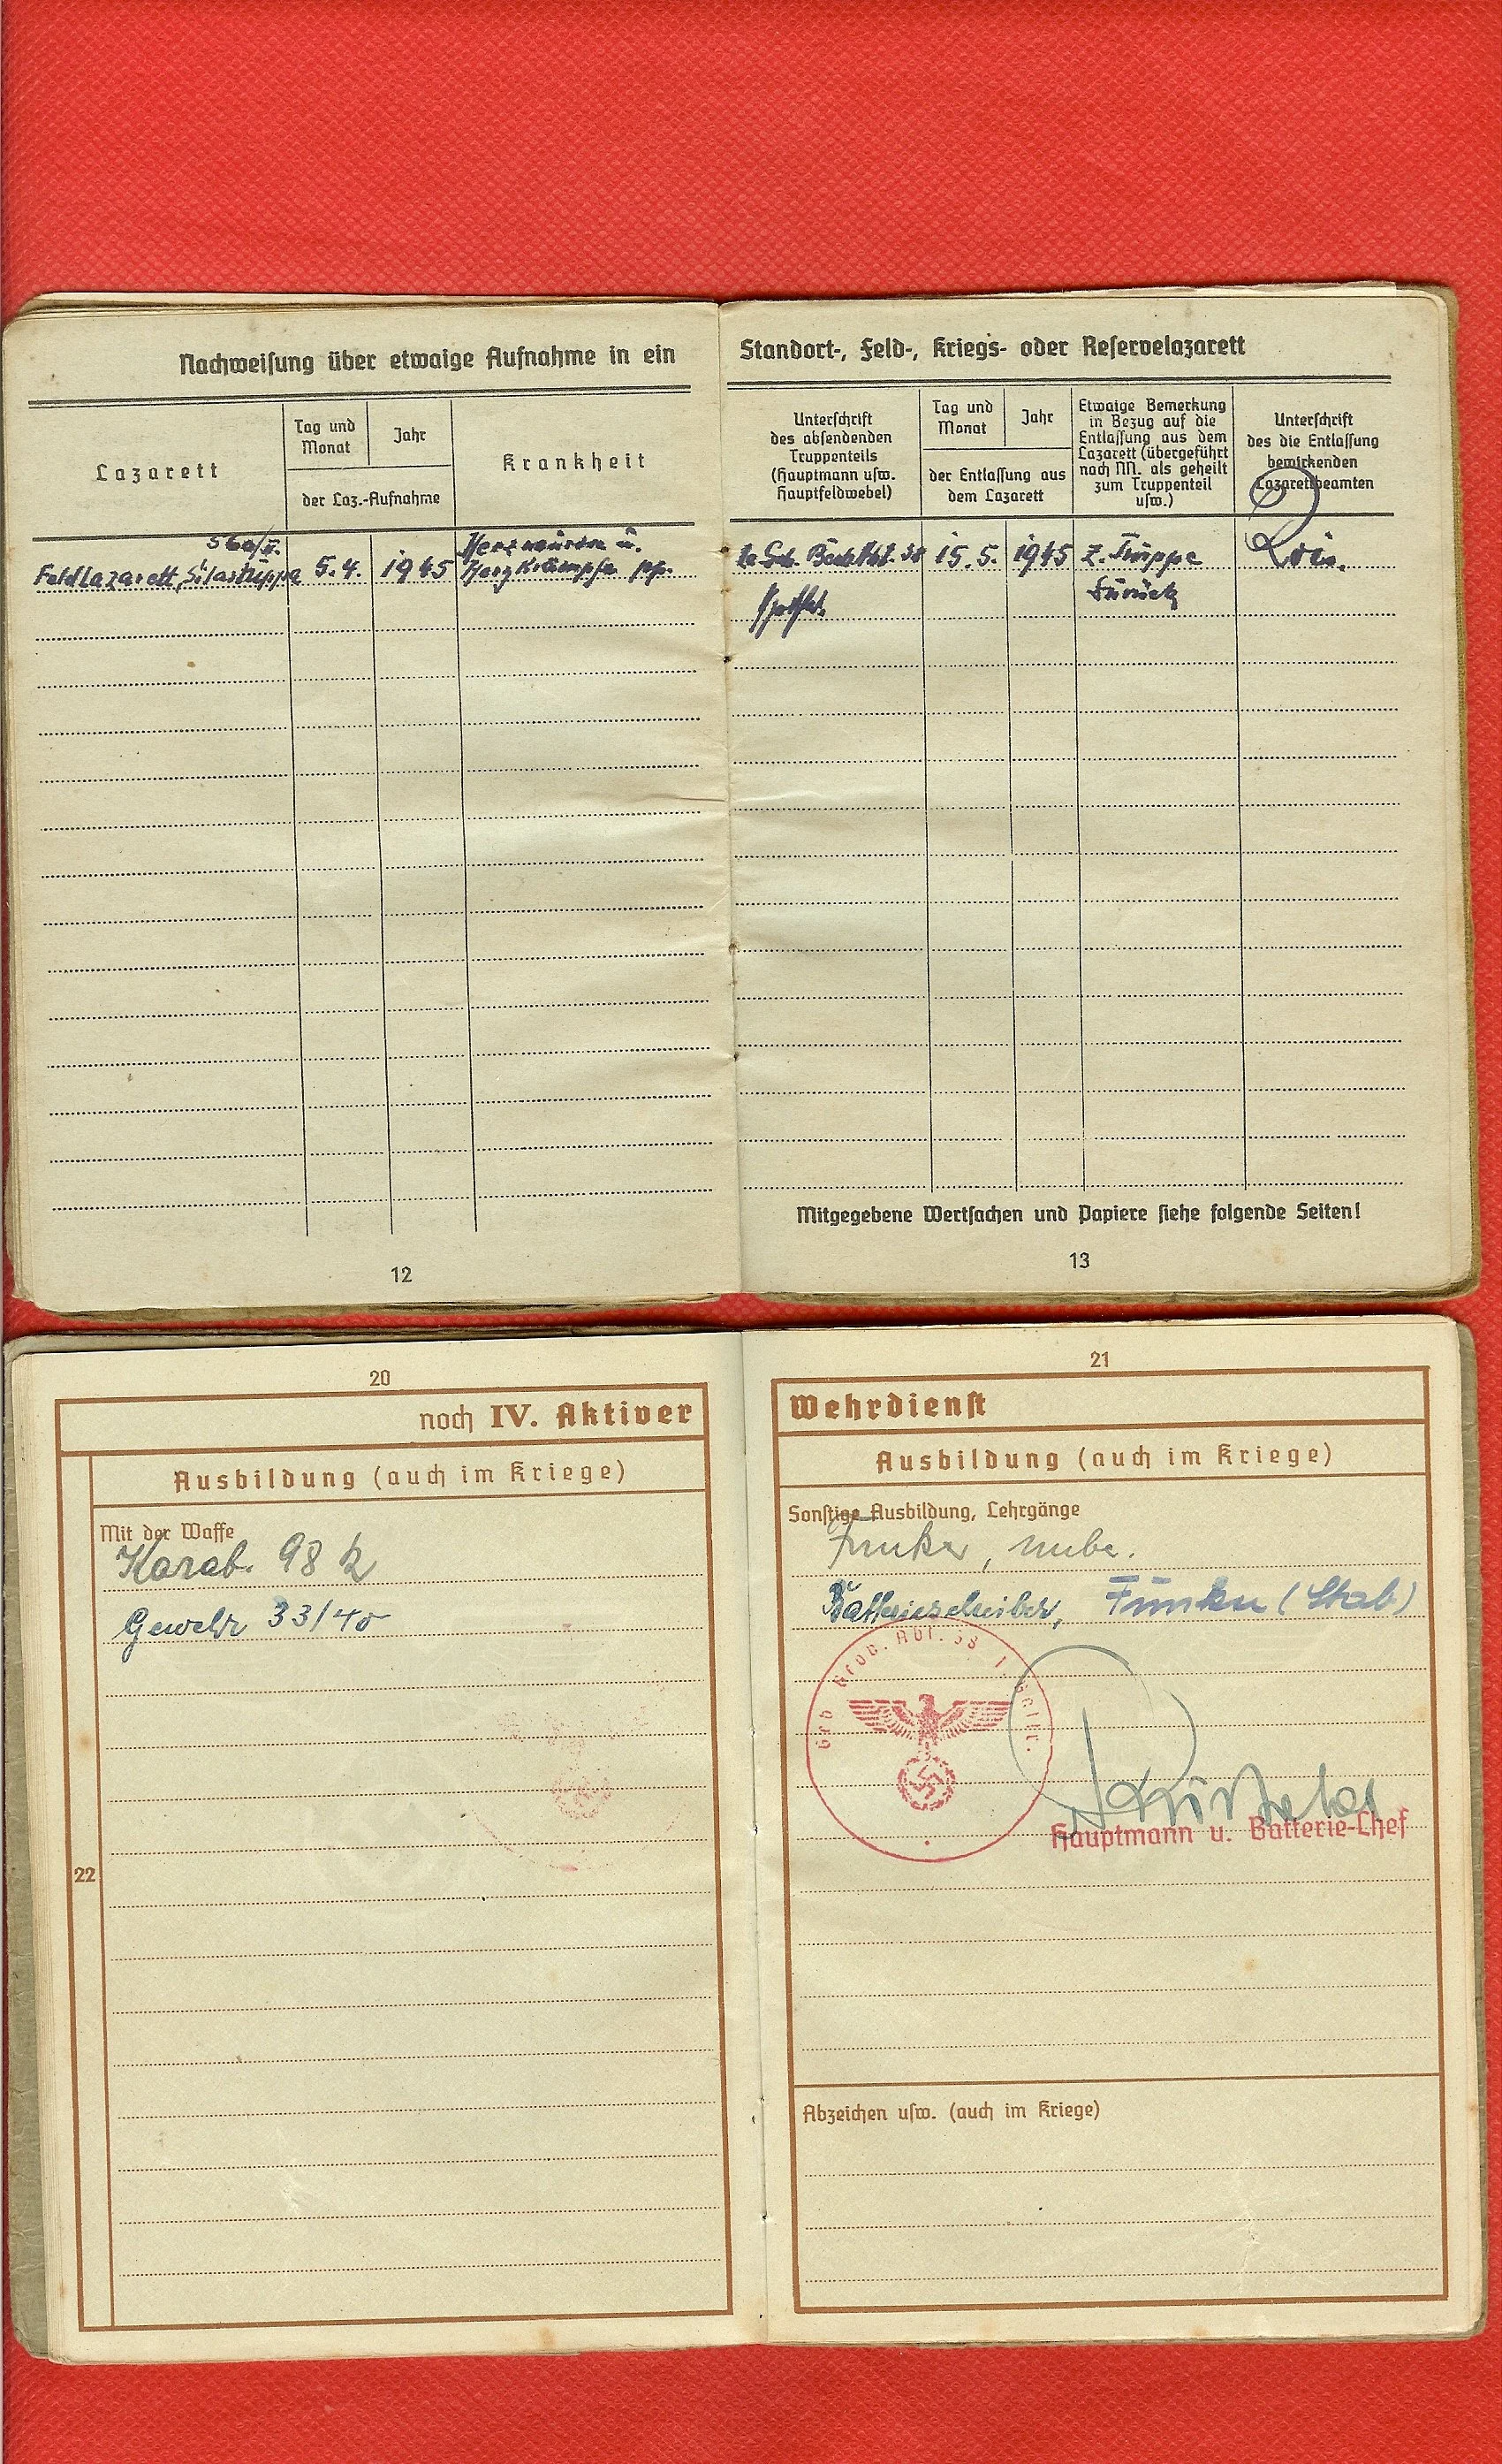 Nachweisung über etwaige Aufnahme in ein
Lazarett
Tag und
Monat
Jahr
der Laz.-Aufnahme
Krankheit
Feldlazarett, 5.4. 1945 Herzkrämpfe
12
Standort-, Feld-, Kriegs- oder Reservelazarett
Unterschrift
des absendenden
Truppenteils
(Hauptmann usw.
Hauptfeldwebel)
Tag und
Monat
Jahr
der Entlassung aus
dem Lazarett
Etwaige Bemerkung
in Bezug auf die
Entlassung aus dem
Lazarett (übergeführt
nach NN. als geheilt
zum Truppenteil
usw.)
Unterschrift
des die Entlassung
bewirkenden
Lazarettbeamten
15.5. 1945 z. Truppe
zurück
Mitgegebene Wertsachen und Papiere siehe folgende Seiten!
13
20
noch IV. Aktiver
Ausbildung (auch im Kriege)
Mit der Waffe
Karab. 98 k
Gewehr 33/40
22
21
Wehrdienst
Ausbildung (auch im Kriege)
Sonstige Ausbildung, Lehrgänge
Funker,
Batterieschreiber, Funker (Stab)
Hauptmann u. Batterie-Chef
Abzeichen usw. (auch im Kriege)